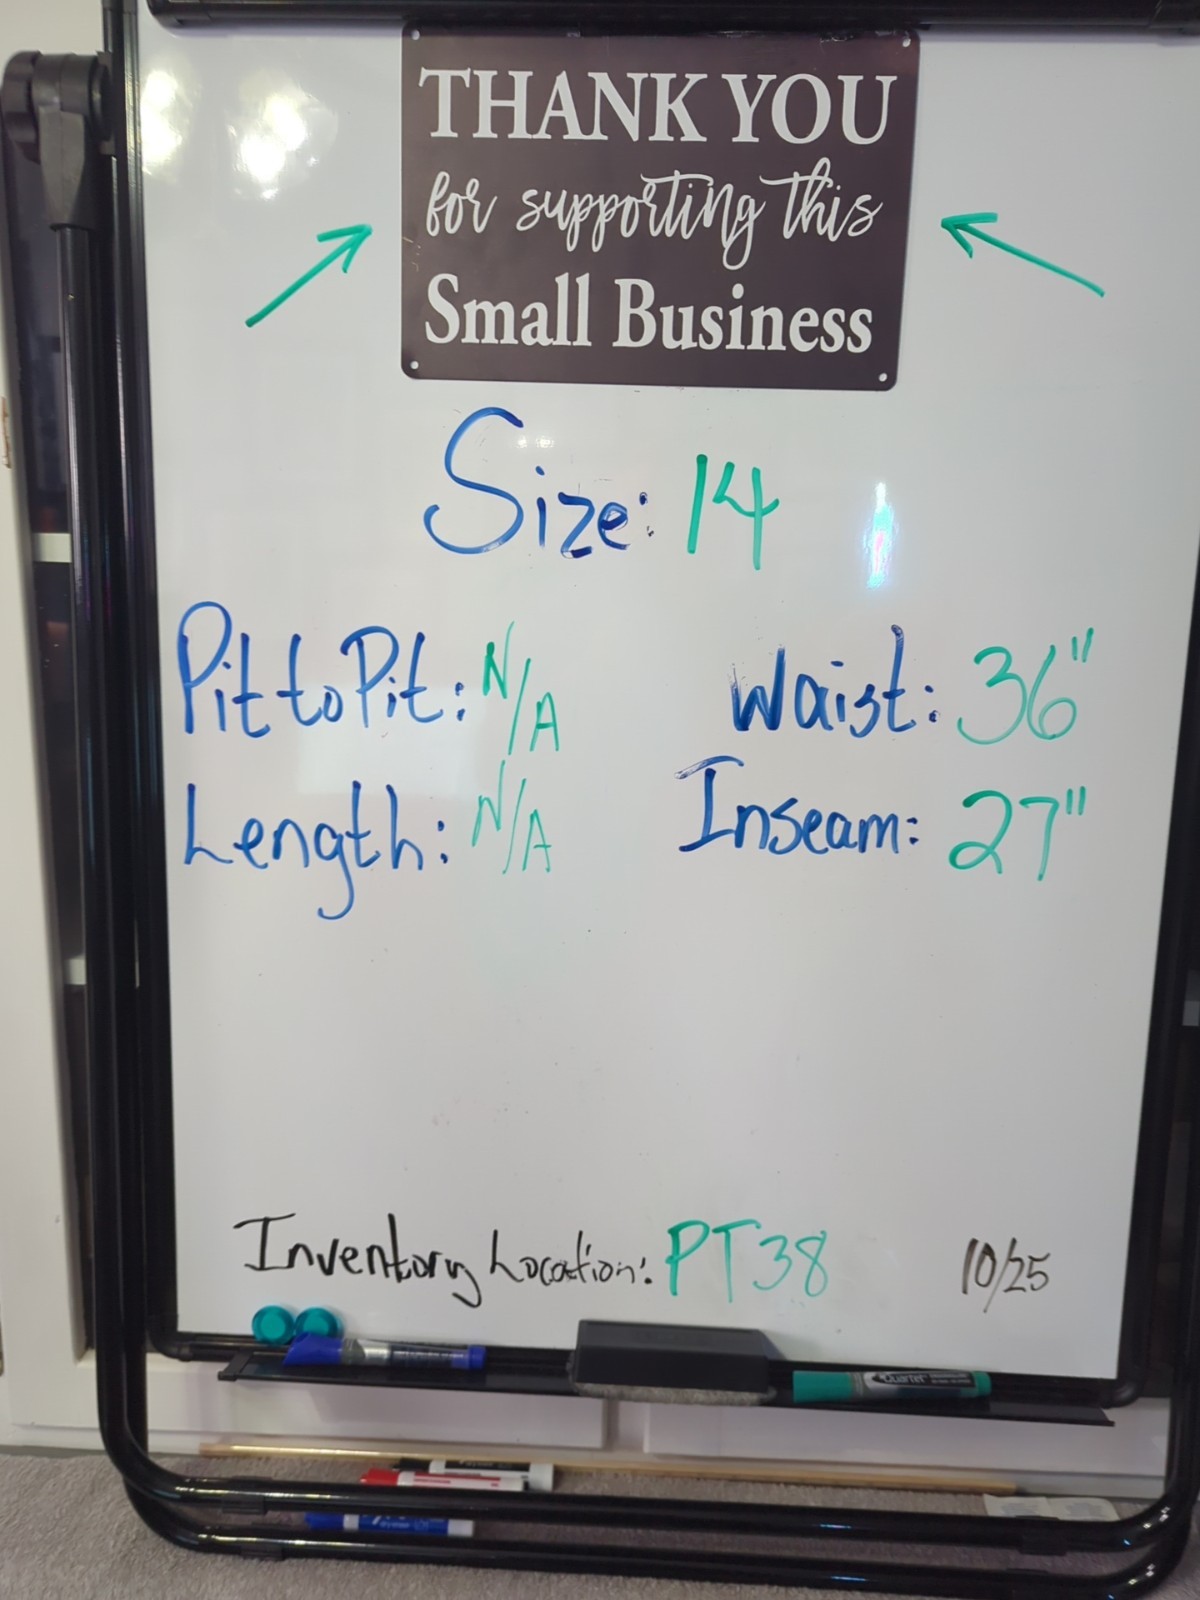 THANK YOU
for supporting this
Small Business
Size: 14
Pit to Pit: N/A
Waist: 36"
Length: N/A
Inseam: 27"
Inventory Location: PT38
10/25
Quartet